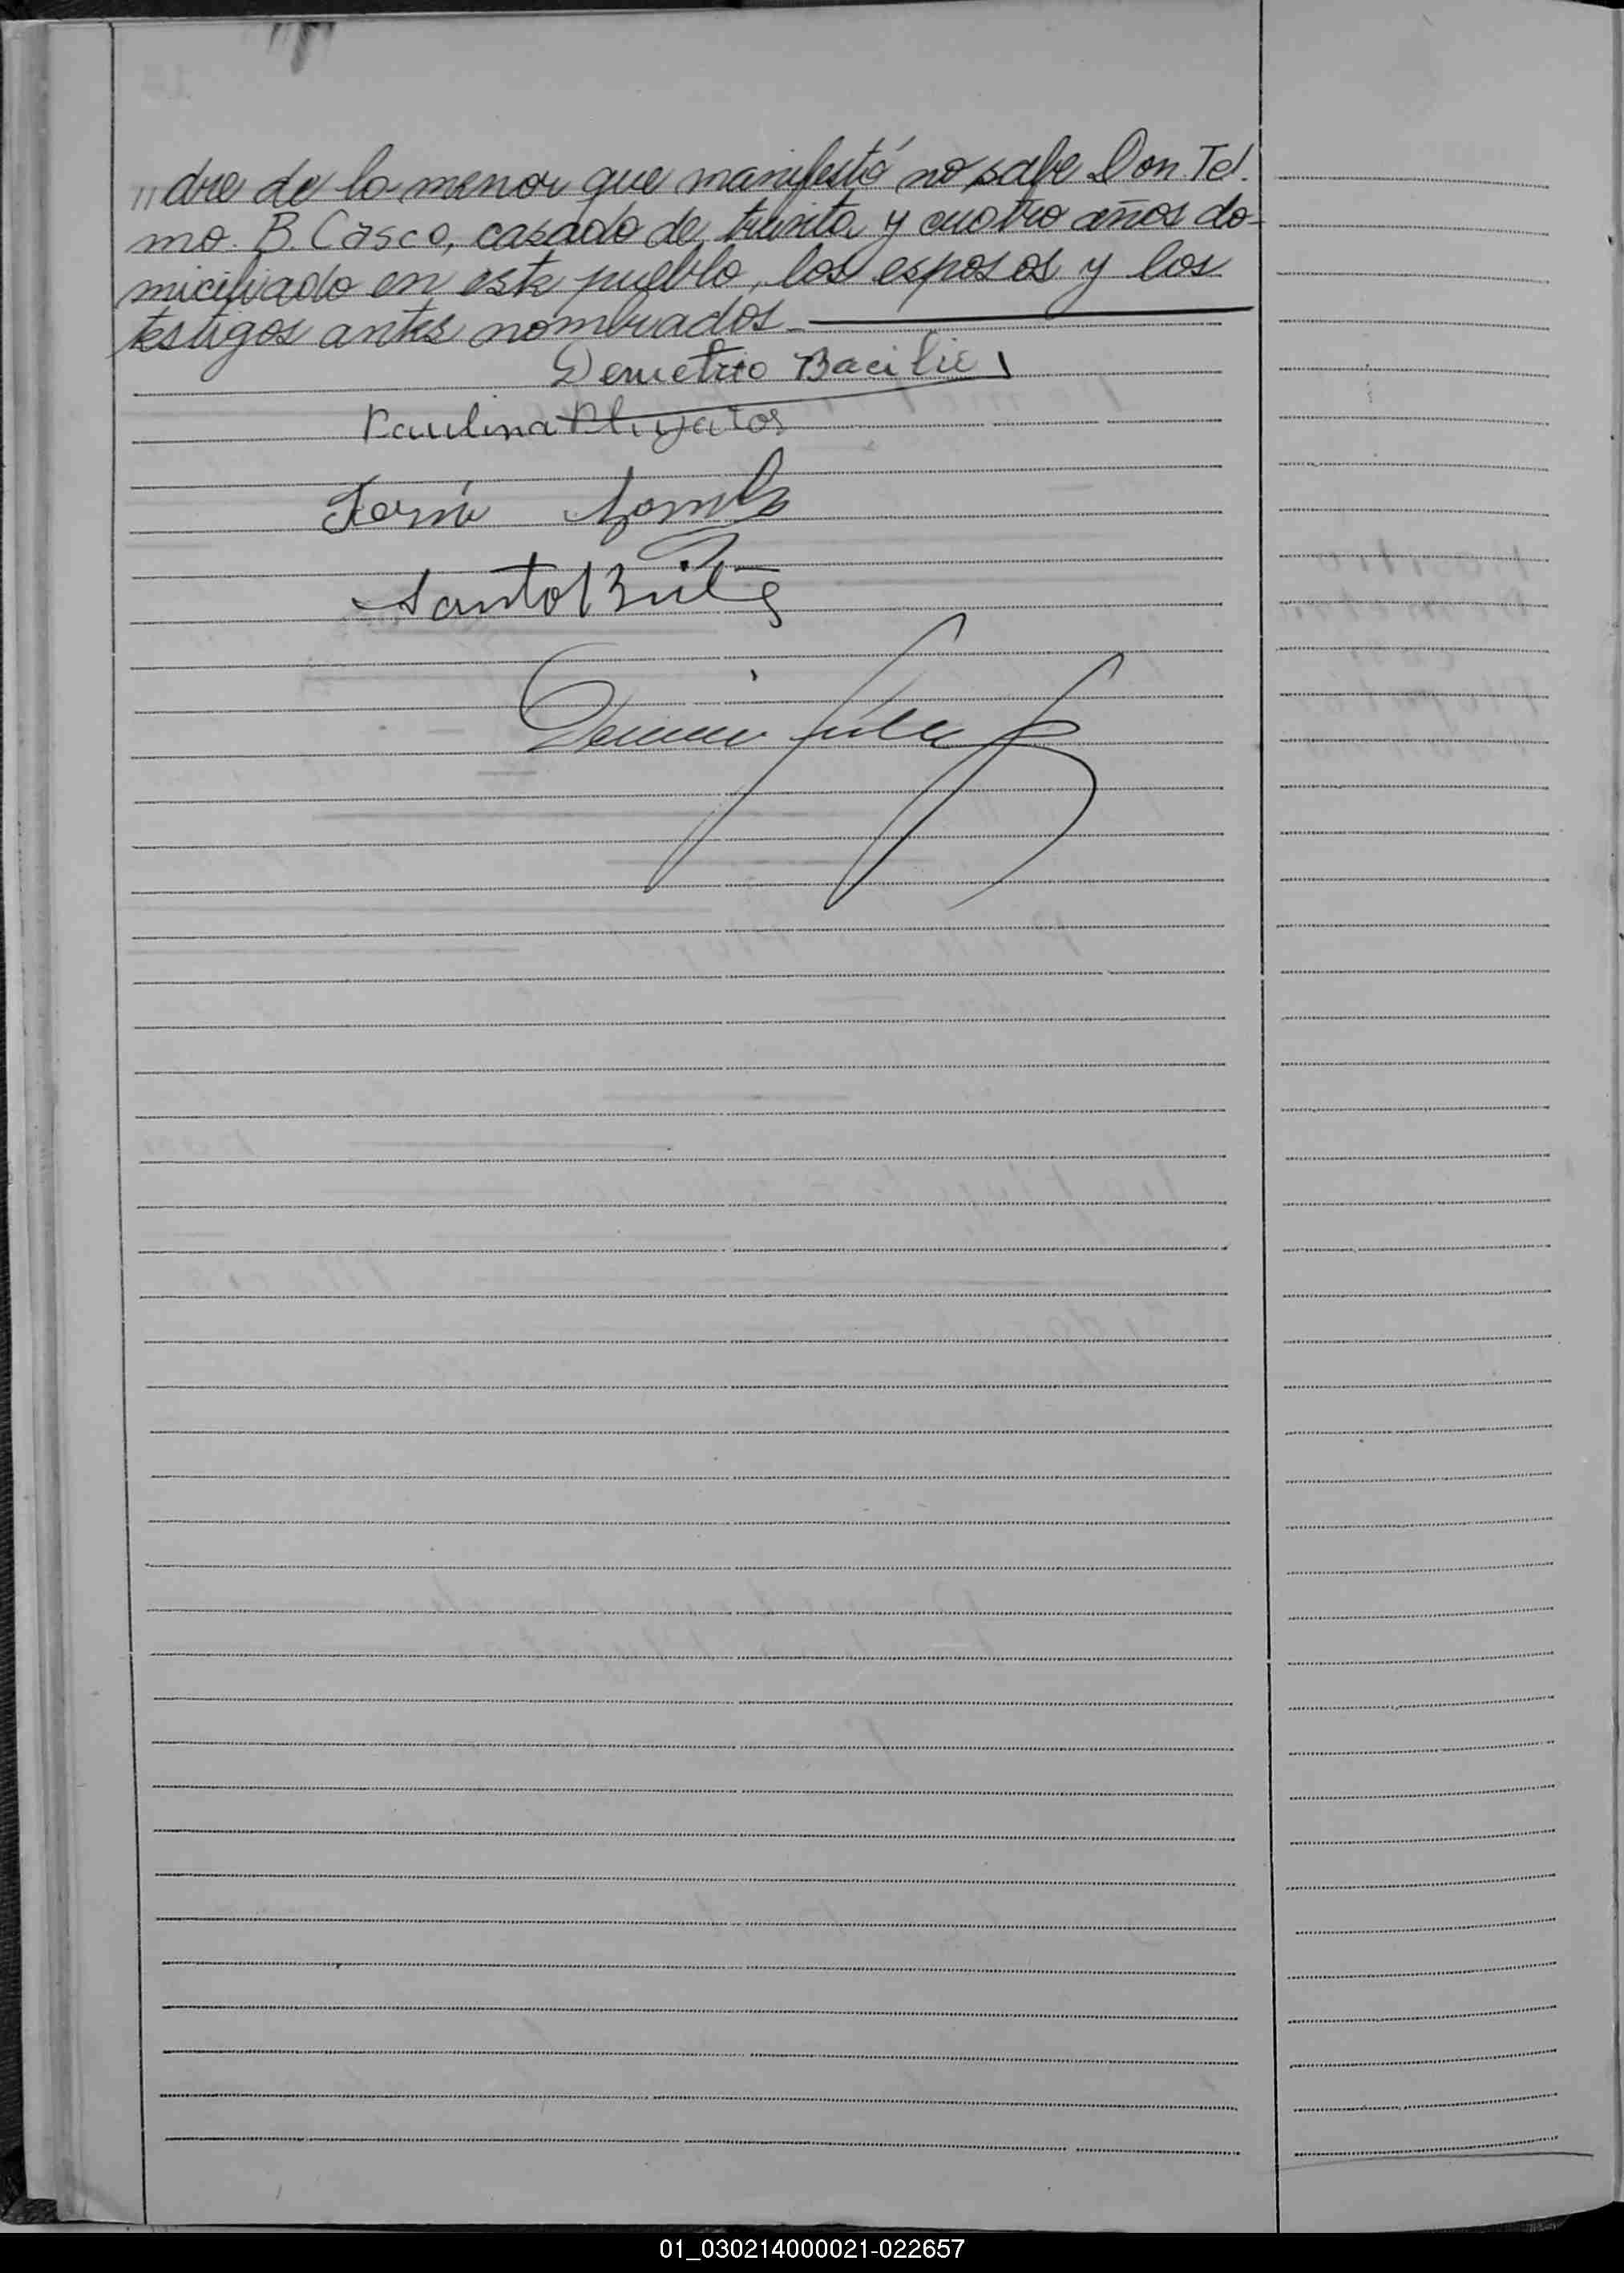 "dre de la menor que manifestó no sabe Don Tel.
mo. B. Casco, casado de treinta y cuatro años do-
miciliado en este pueblo, los esposos y los
testigos antes nombrados.
Demetrio Bacilie
Paulina
Santo
01_030214000021-022657